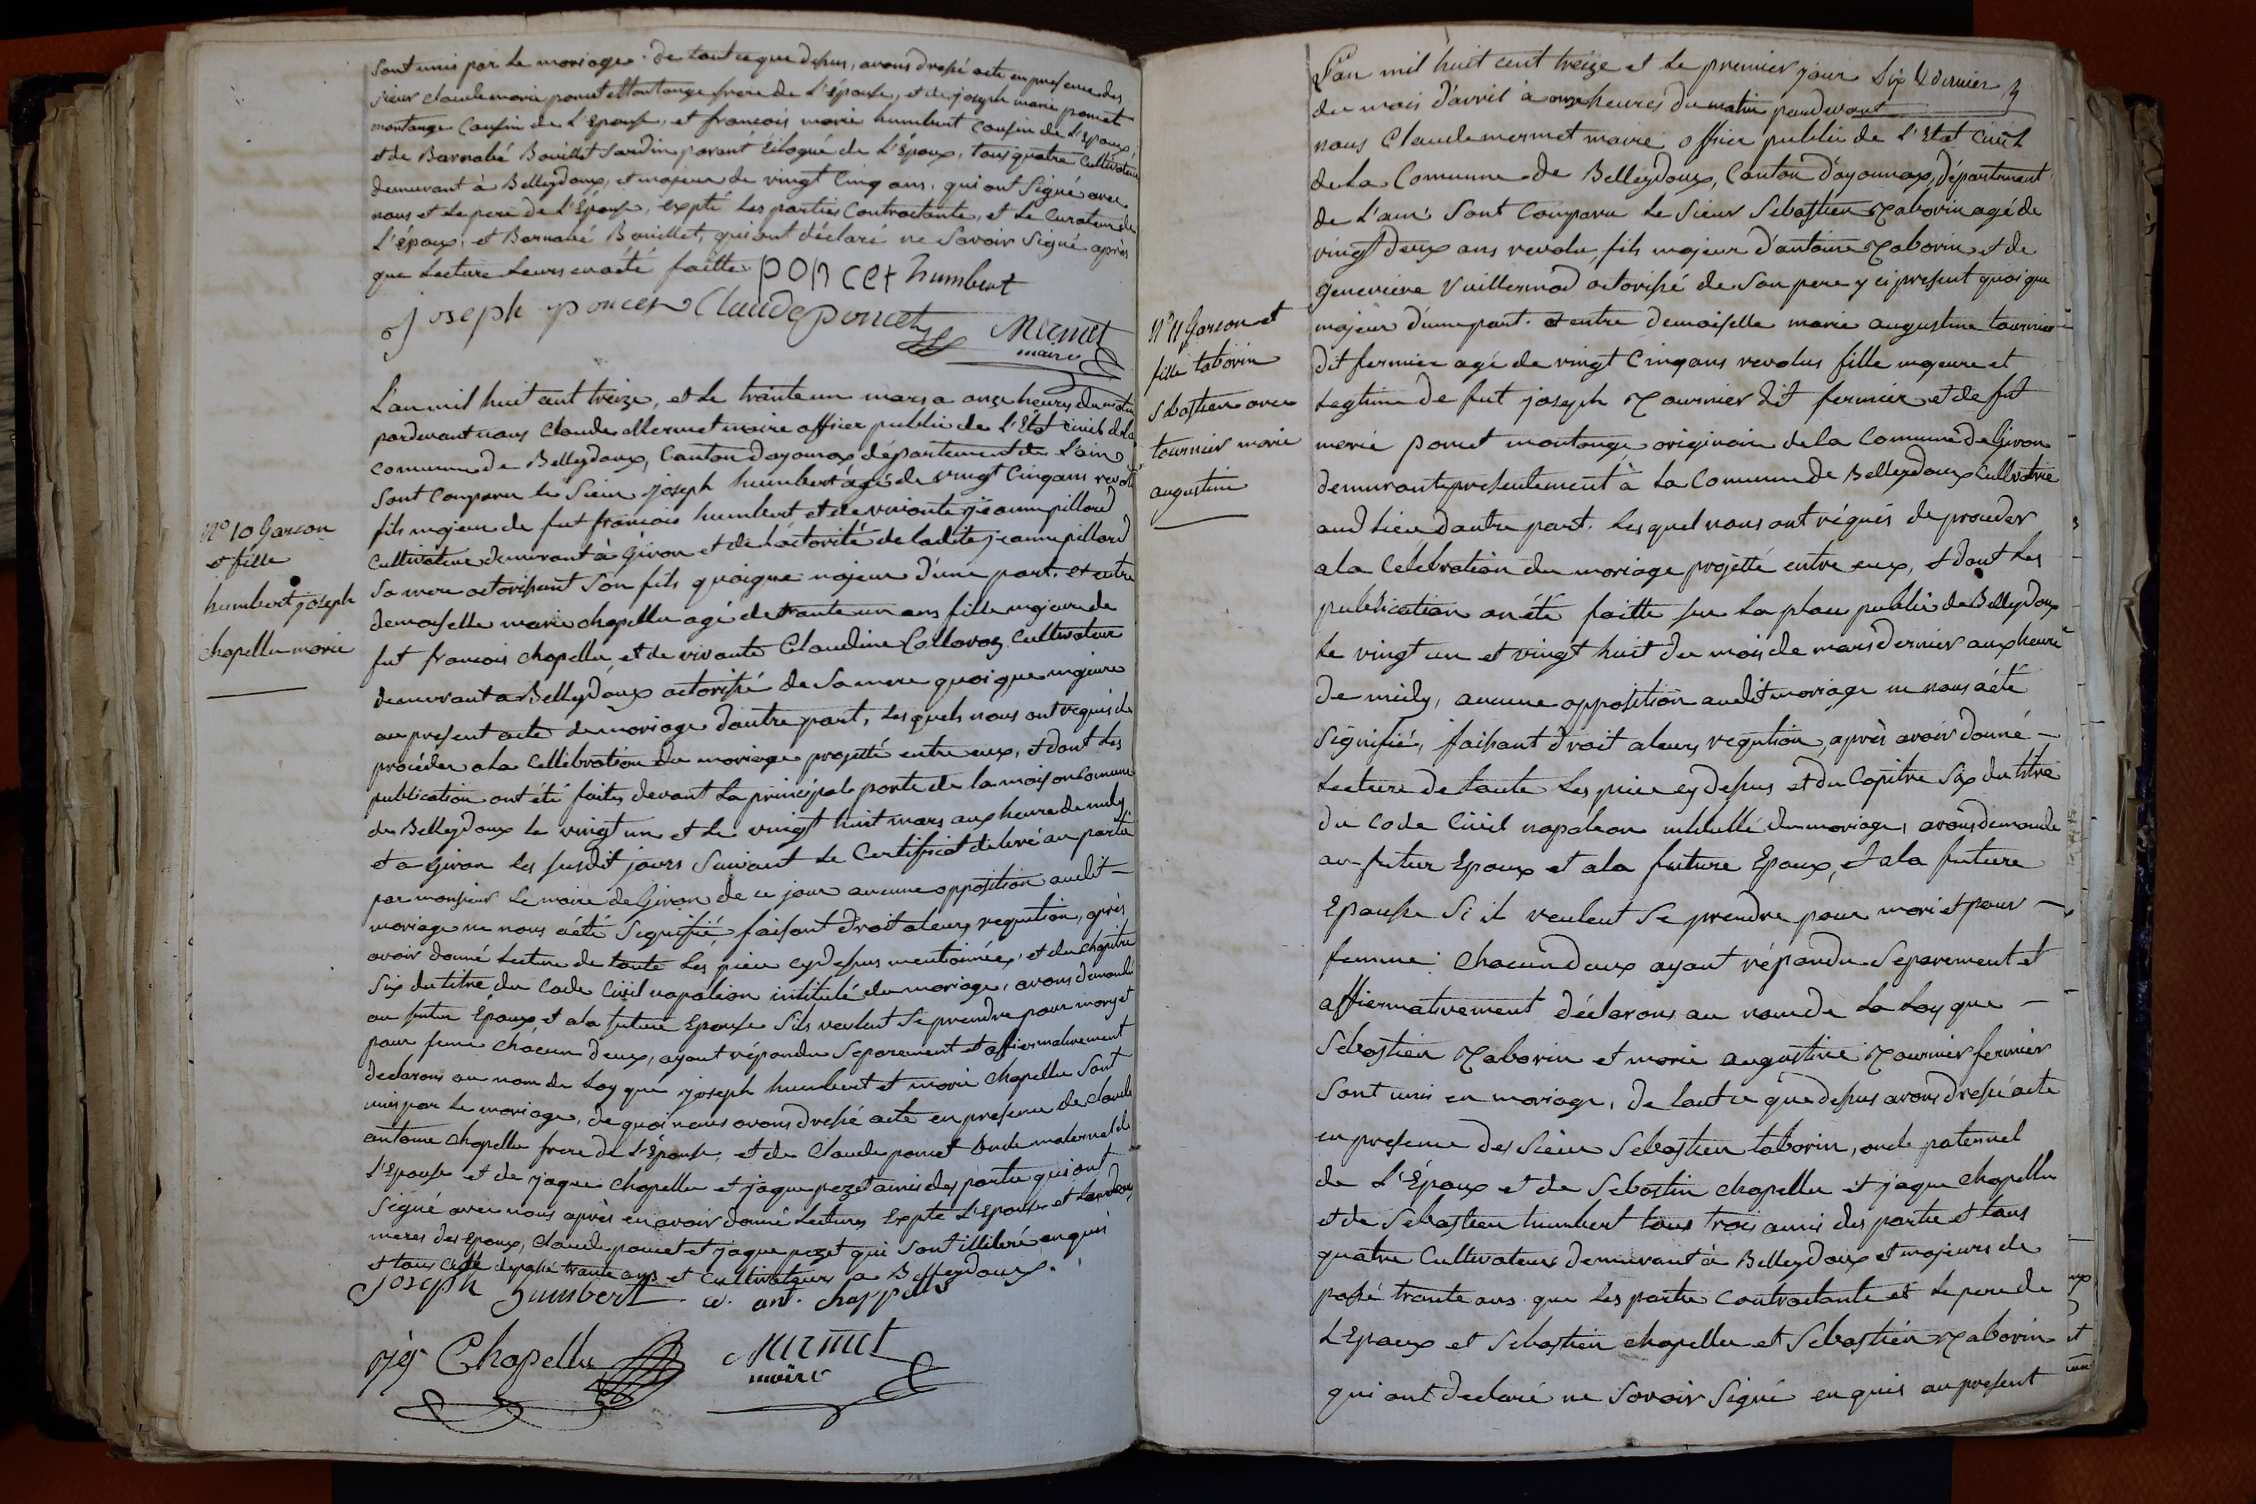 sont unis par le mariage. de tout ce que dessus, avons dressé acte en presence des
sieur claude marie poncet Montange frere de L'épouse, et de joseph marie poncet
montange Cousin de L'Epouse, et francois marie humbert Cousin de L'Epoux,
et de Barnabé Bouillet Jardin parant Eloigné de L'époux, tous quatre Cultivateurs
demeurant à Belleydoux, et majeur de vingt Cinq ans, qui ont Signé avec
nous et le pere de L'Epouse, expté les parties Contractante, et le Curateur de
L'époux, et Barnabé Bouillet, qui ont déclaré ne Savoir Signé après
que Lecture leurs en a été faitte
poncet humbert
joseph poncet Claude poncet
Mermet
maire
L'an mil huit cent treize, et le trante un mars a onze heures du matin
pardevant nous Claude Mermet maire officier public de L'Etat Civil de la
Commune de Belleydoux, Canton d'ayonnax département de L'ain
Sont Comparu le Sieur joseph humbert âgé de vingt Cinq ans revolu
fils majeur de fut francois humbert et de vivante jeanne pillard
Cultivateur demeurant à Giron et de L'actorité de ladite jeanne pillard
Sa mere actorisant Son fils quoique majeur d'une part. et entre
demoiselle marie chapellu agé de trante un ans fille majeure de
fut francois chapellu et de vivante Claudine Collavoz Cultivateur
demeurant a Belleydoux actorisé de Sa mere quoique majeure
au present acte de mariage d'autre part, Lesquels nous ont requis de
procéder a la Cellebration du mariage projetté entre eux, et dont les
publication ont été faites devant la principale porte de la maison Commune
de Belleydoux le vingt un et le vingt huit mars aux heure de midy
et a Giron les susdit jours Suivant le Certificat delivré au partie
par monsieur le maire de Giron de ce jour aucune opposition audit
mariage ne nous a été Signifié, faisant droit a leurs requition, après
avoir donné Lecture de toute Les piece cy dessus mentionnées, et du chapitre
Six du titre du Code Civil napoléon intitulé du mariage, avons demandé
au futur Epoux et a la future Epouse S'ils veulent Se prendre pour mary et
pour feme chacun d'eux, ayant répondu Separement et affiermativement
declarons au nom de Loy que joseph humbert et marie chapellu Sont
unis par le mariage, de quoi nous avons dressé acte en presence de claude
antoine chapellu frere de L'épouse, et de Claude poncet Oncle maternel de
L'Epouse et de jaque chapellu et jaque pezet amis des partie qui ont
Signé avec nous après en avoir donné Lectures Expté L'Epouse et les deux
meres des Epoux, Claude poncet et jaque pezet qui Sont illiteré enquis
et tous agé de passé trante ans et Cultivateurs a Belleydoux.
Joseph humbert c. ant. chappellu
Chapellu
Mermet
maire
N° 10 Garcon
et fille
humbert joseph
chapellu marie
L'an mil huit cent treize et le premier jour
Six & dernier
du mois d'avril à onze heures du matin pardevant
nous Claude mermet maire officier public de L'Etat Civil
de la Commune de Belleydoux, Canton d'ayonnax, département
de L'ain Sont Comparu le Sieur Sebastien Taborin agé de
vingt deux ans revolu, fils majeur d'antoine Taborin et de
Genevieve Vuillermod actorisé de Son pere y ci present quoique
majeur d'une part. et entre demoiselle marie augustine tournier
dit fermier agé de vingt Cinq ans revolus fille majeure et
Legtime de fut joseph Tournier dit fermier et de fut
marie poncet montange originaire de la Commune de Giron
demeurante presentement à la Commune de Belleydoux Cultivatrice
aud Lieu d'autre part. Lesquel nous ont réquis de proceder
a la Celebration du mariage projetté entre eux, et dont les
publication on été faitte sur la place public de Belleydoux
le vingt un et vingt huit du mois de mars dernier aux heure
de midy, aucune opposition audit mariage ne nous a été
Signifié, faisant droit a leurs requition, après avoir donné
Lecture de toute Les piece cy dessus et du Capitre Six du titre
du Code Civil napoleon intitullé du mariage, avons demandé
au futur Epoux et a la future Epoux, et a la future
Epouse Si il veulent Se prendre pour mari et pour
femme: chacun d'eux ayant répondu Separement et
affiermativement déclarons au nom de La Loy que
Sebastien Taborin et marie augustine Tournier fermier
Sont unis en mariage, de tout ce que dessus avons dressé acte
en presence des Sieur Sebastien taborin, oncle paternel
de L'Époux et de Sebastien chapellu et jaque chapellu
et de Sebastien humbert tous trois amis des partie et tous
quatre Cultivateurs demeurant à Belleydoux et majeurs de
passé trante ans que les partie Contractante et le pere de
L'Epoux et Sebastien chapellu et Sebastien Taborin
qui ont declaré ne Savoir Signé enquis au present
N° 11 Garcon et
fille taborin
Sebastien avec
tournier marie
augustine